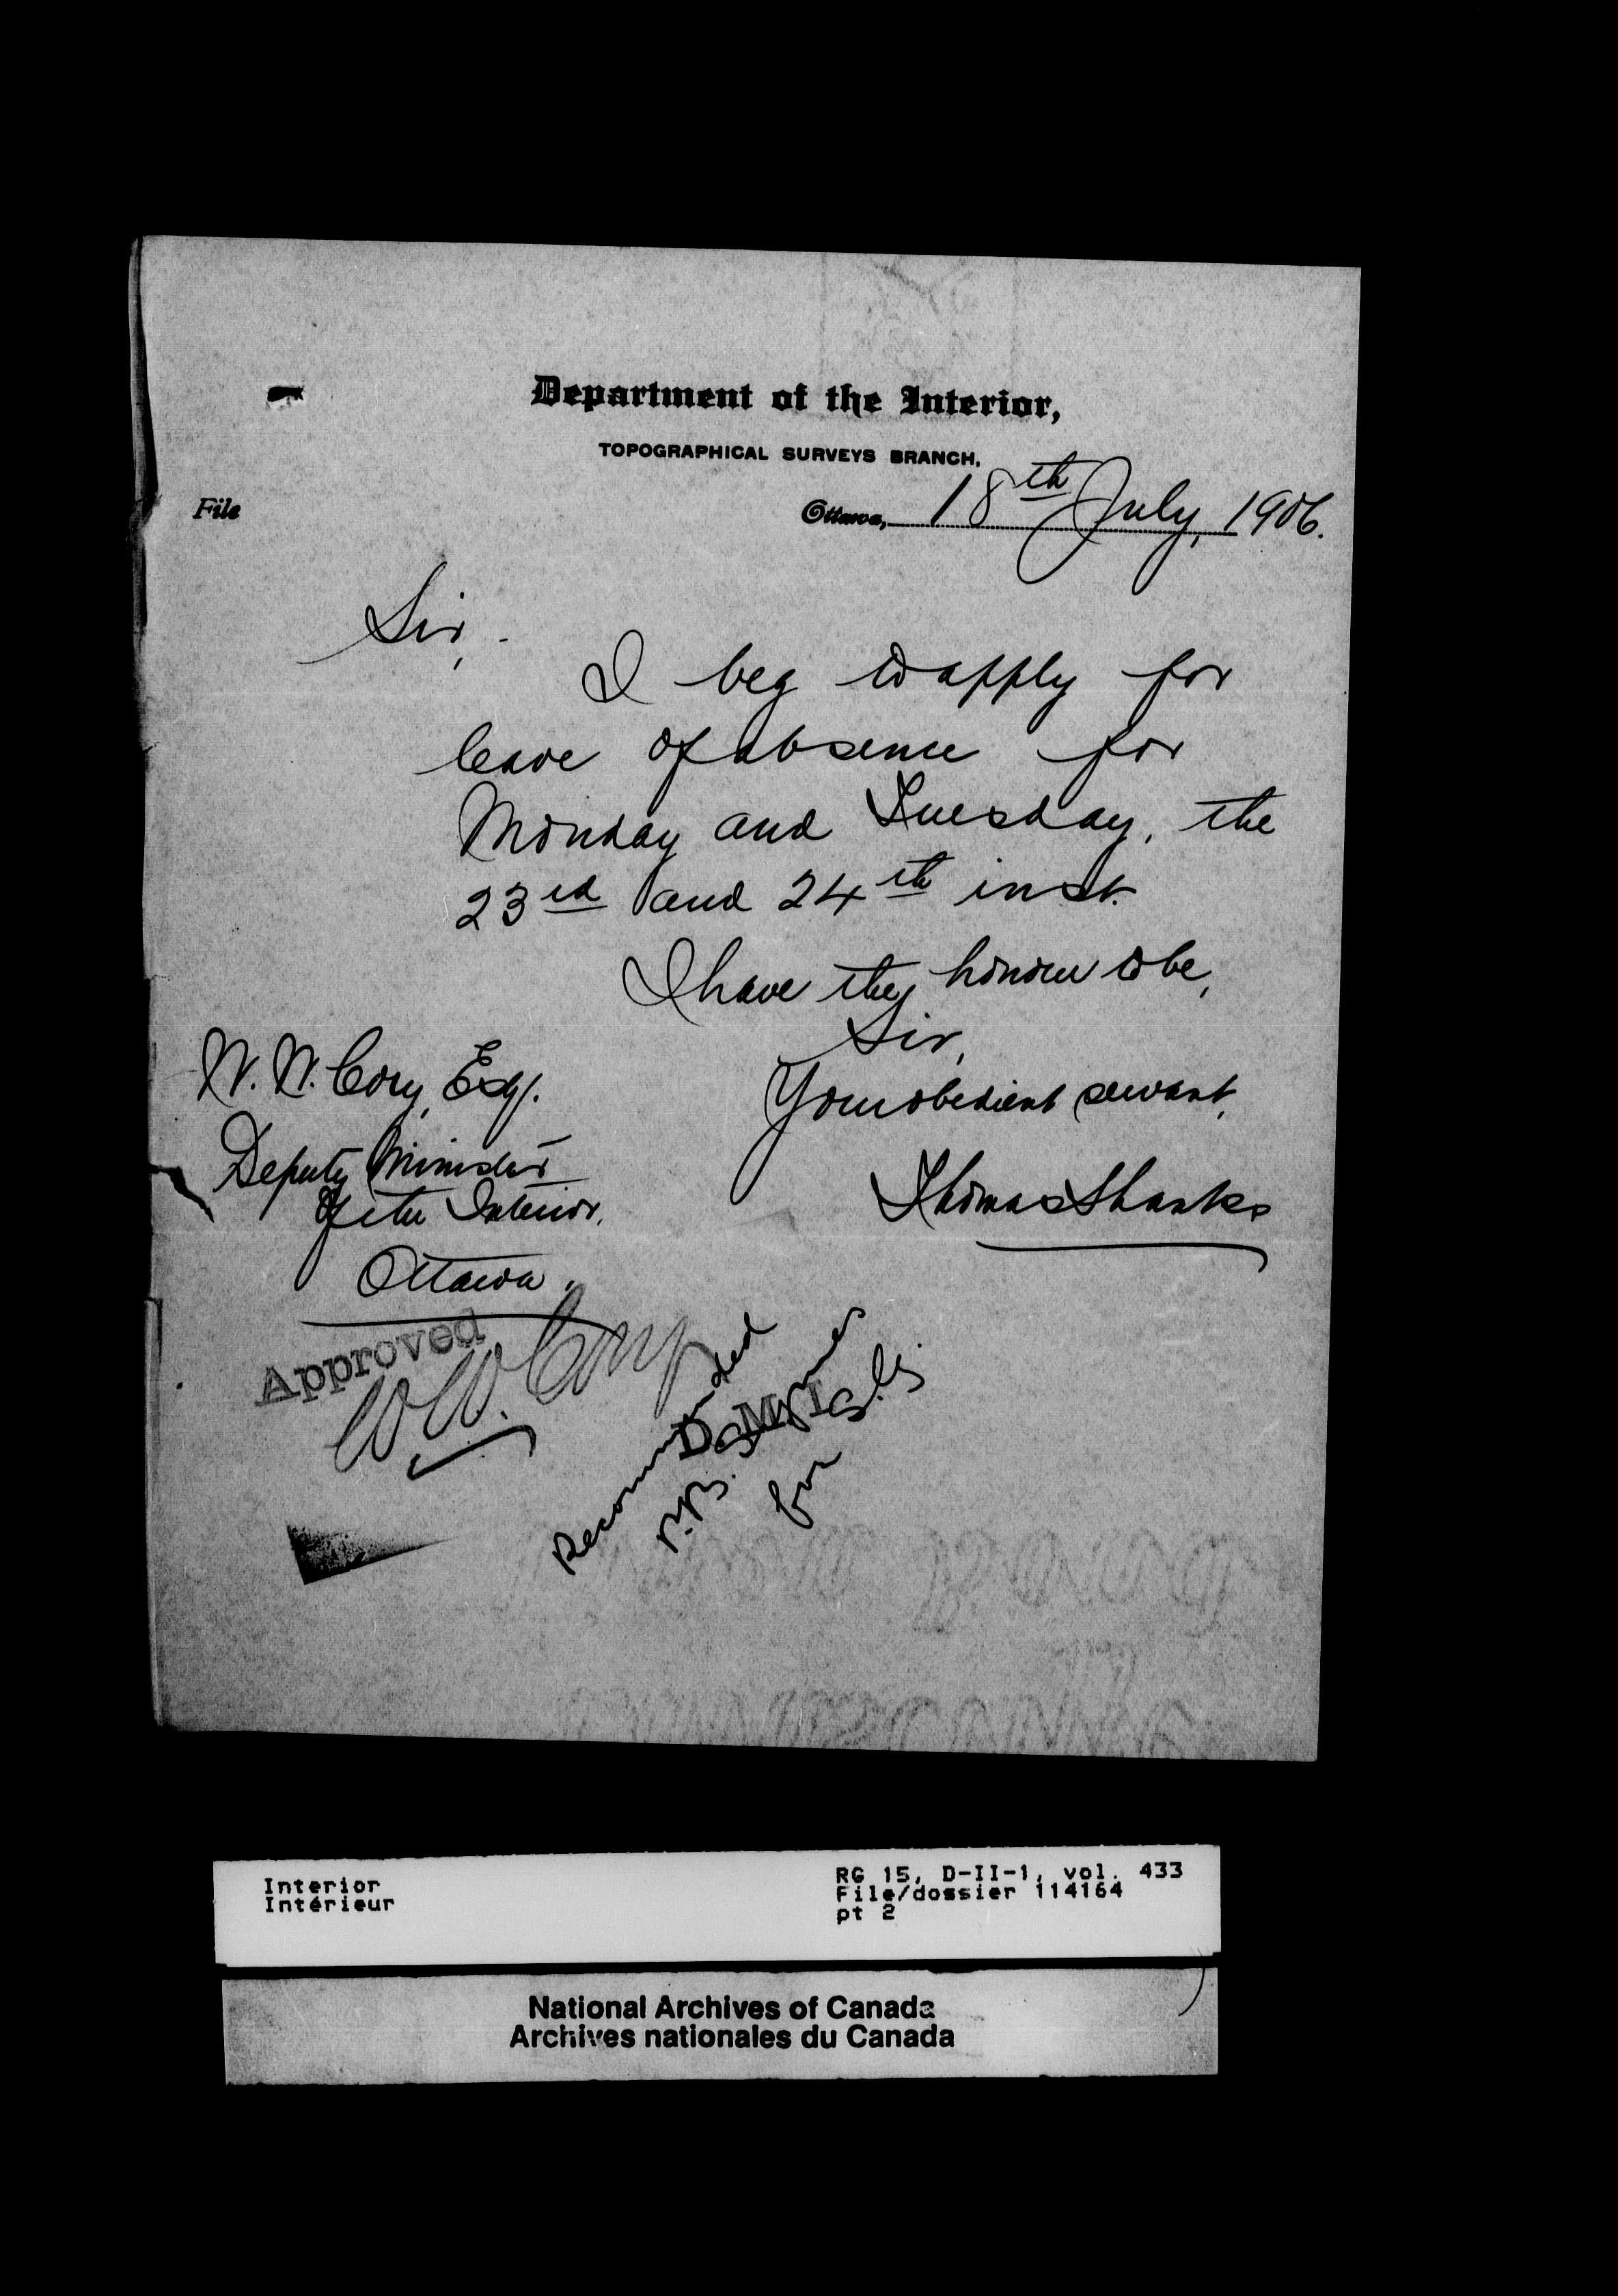 Department of the Interior,
TOPOGRAPHICAL SURVEYS BRANCH,
File
Ottawa, 18th July, 1906.
Sir, -
I beg to apply for
leave of absence for
Monday and Tuesday, the
23rd and 24th inst.
I have the honour to be,
Sir,
Your obedient servant,
Thomas Shanks
W. W. Cory, Esq.
Deputy Minister
of the Interior,
Ottawa.
Approved
W W. Cory
D. M. I.
Recommended
P. B. Symes
for S. G.
Interior
Intérieur
RG 15, D-II-1, vol. 433
File/dossier 114164
pt 2
National Archives of Canada
Archives nationales du Canada